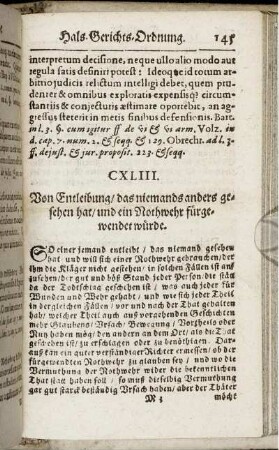 Hals-Gerichts-Ordnung. 145
interpretum decisione, neque ullo alio modo aut
regula satis definiri potest: Ideoque id totum ar-
bitrio judicis relictum intelligi debet, quem pru-
denter & omnibus exploratis expensisq; circum-
stantiis & conjecturis æstimare oportebit, an ag-
gressus steterit in metis finibus defensionis. Bart.
in l. 3. §. cum igitur ff de vi & vi arm. Volz. in
d. cap. 7. num. 2. & seqq. & 129. Obrecht. ad l. 3.
ff. de just. & jur. proposit. 223. & seqq.
CXLIII.
Von Entleibung / das niemands anders ge-
sehen hat / und ein Nothwehr fürge-
wendet würde.
SO einer jemand entleibt / das niemand gesehen
hat / und will sich einer Nothwehr gebrauchen / der
ihm die Kläger nicht gestehen / in solchen Fällen ist an-
zusehen / der gut und böß Stand jeder Person / die statt
da der Todtschlag geschehen ist / was auch jeder für
Wunden und Wehr gehabt / und wie sich jeder Theil
in dergleichen Fällen / vor und nach der That gehalten
hab / welcher Theil auch auß vorgehenden Geschichten
mehr Glaubens / Ursach / Bewegung / Vortheils oder
Nutz haben mög / den andern an dem Ort / als die That
geschehen ist / zu erschlagen oder zu benöthigen. Dar-
auß kan ein guter verständiger Richter ermessen / ob der
fürgewendten Nothwehr zu glauben sey / und wo die
Vermuthung der Nothwehr wider die bekenntlichen
That statt haben soll / so muß dieselbig Vermuthung
gar gut starck beständig Ursach haben / aber der Thäter
M 3 möcht